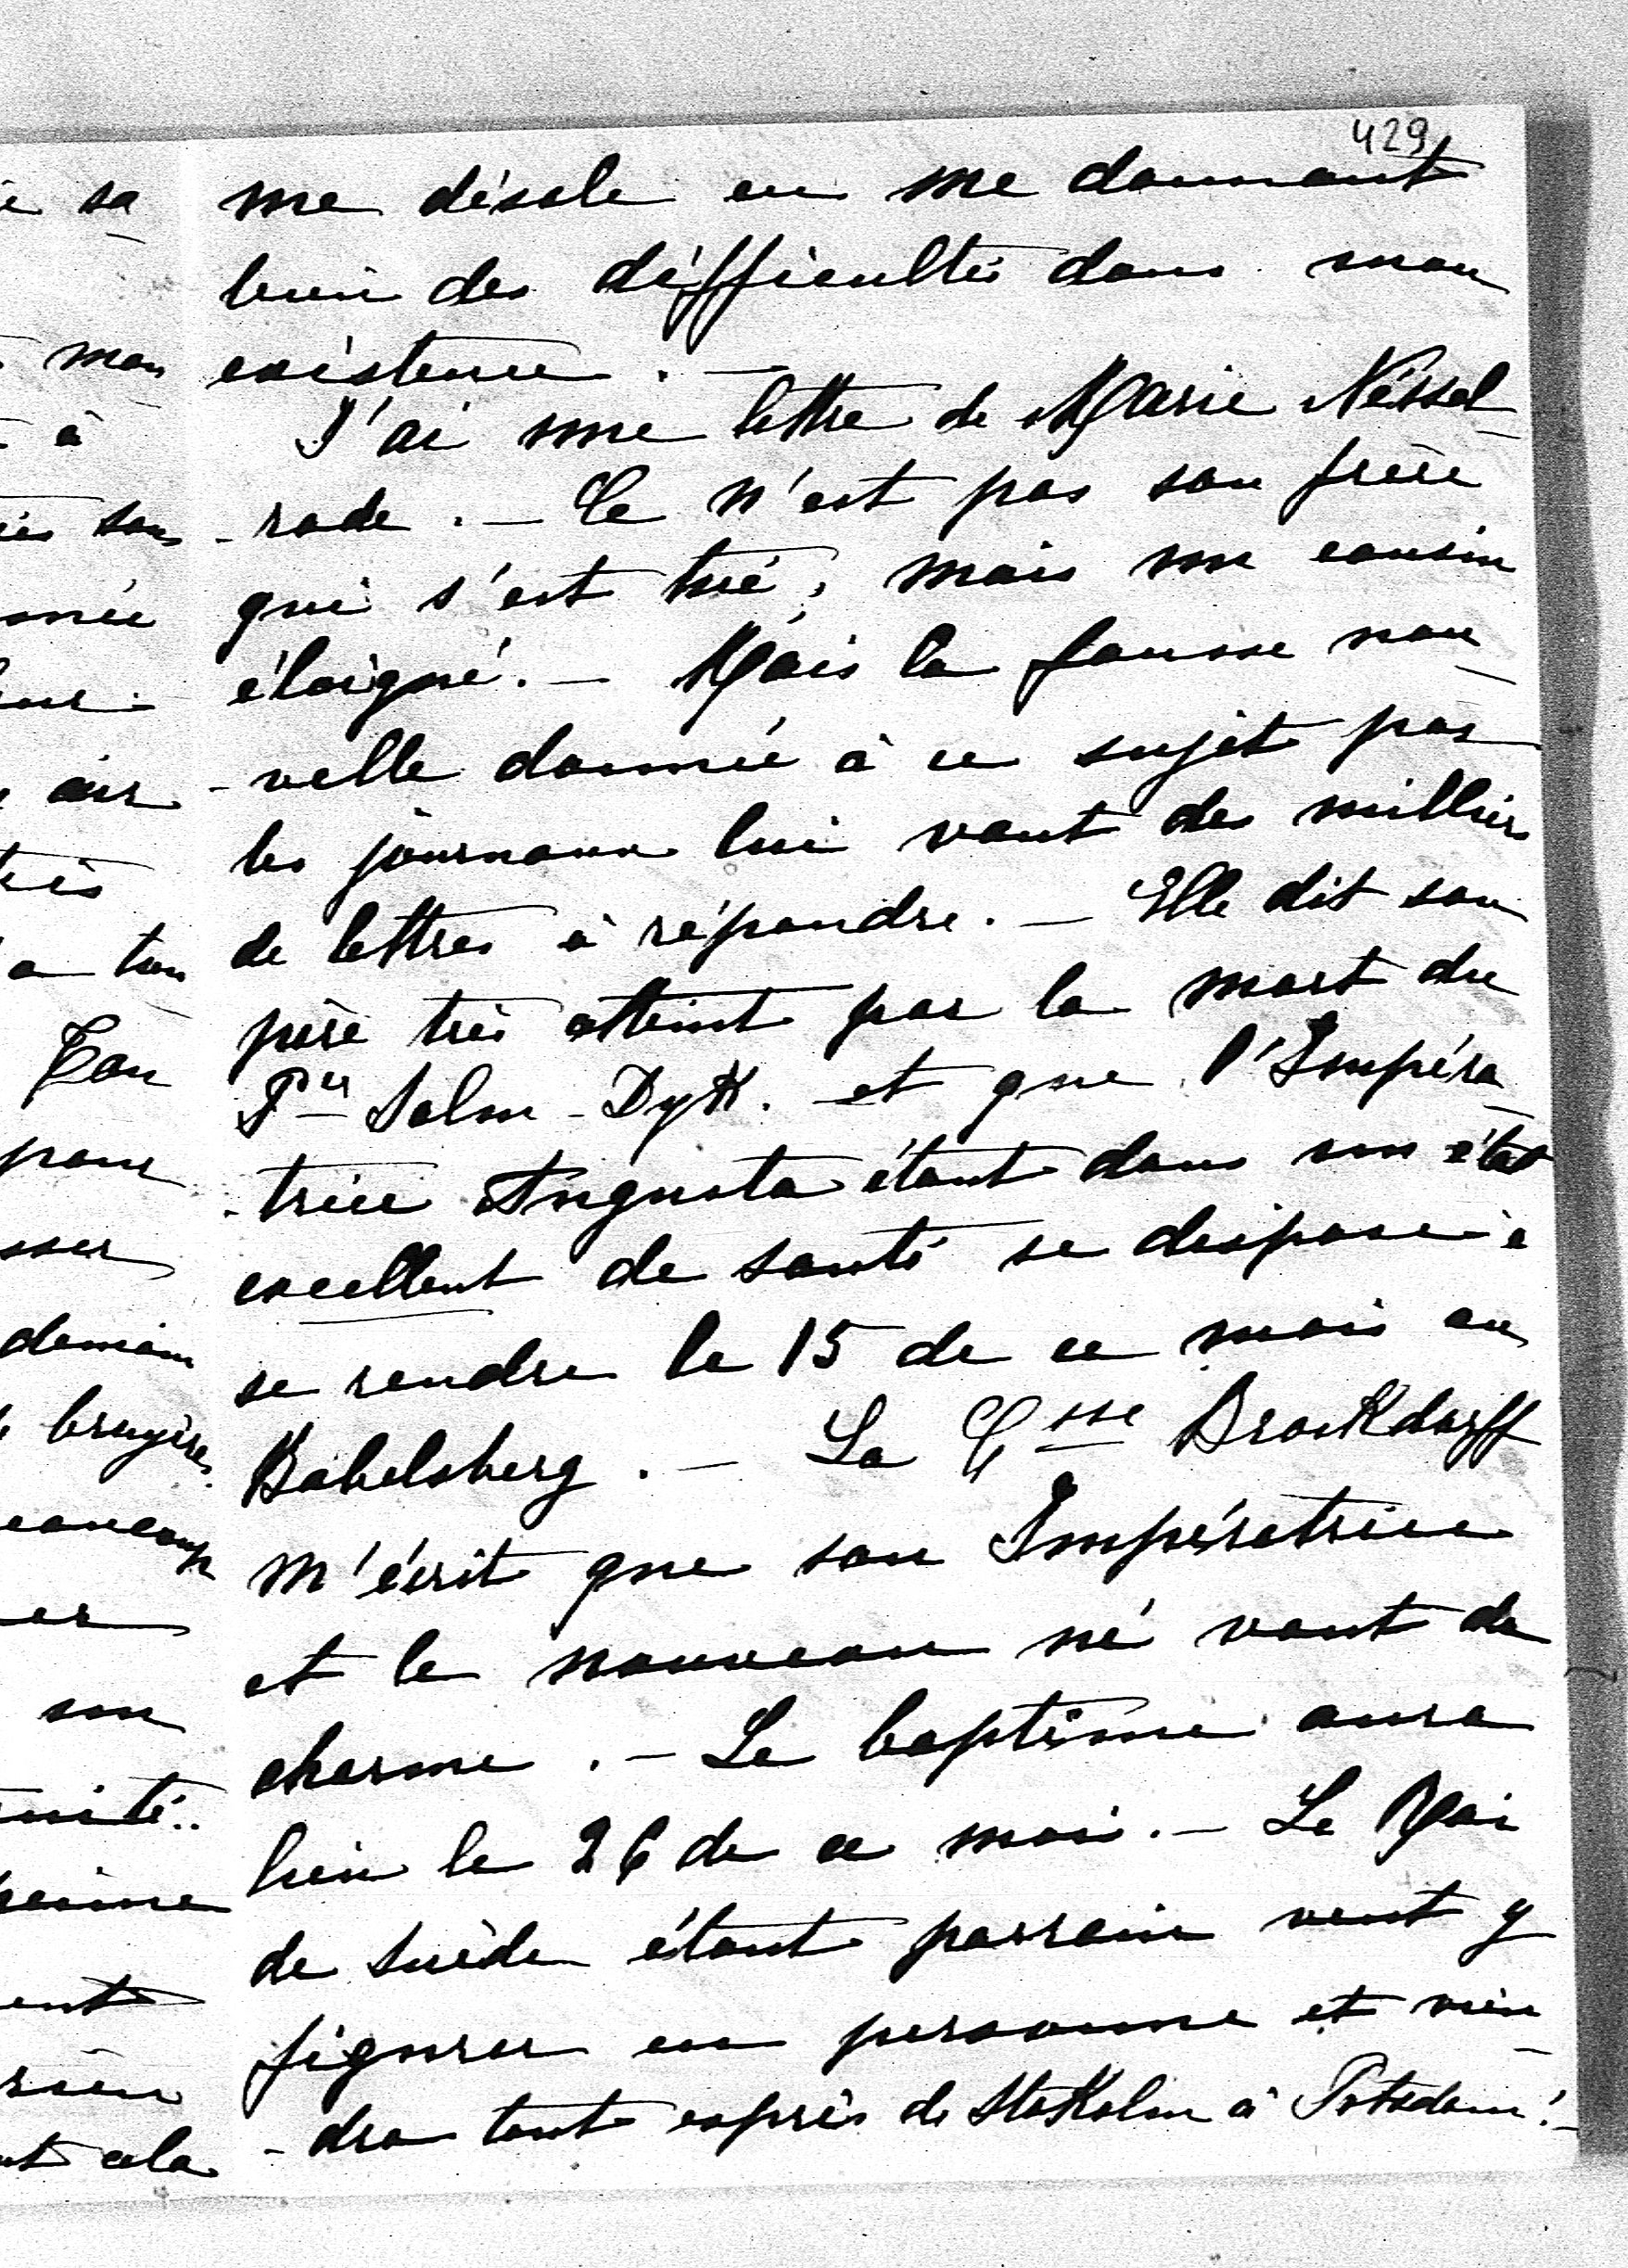 429
me désole en me donnant
bien des difficultés dans mon
existence. —
J'ai une lettre de Marie Nessel-
-rode. — Ce n'est pas son frère
qui s'est tué, mais un cousin
éloigné. — Mais la fausse nou-
-velle donnée à ce sujet par
les journaux lui vaut des milliers
de lettres à répondre. — Elle dit son
père très atteint par la mort du
Pce Salm-Dyk. et que l'Impéra-
-trice Augusta étant dans un état
excellent de santé se dispose à
se rendre le 15 de ce mois au
Babelsberg. — La Csse Brockdorff
m'écrit que son Impératrice
et le nouveau né vont de
charme. — Le baptême aura
lieu le 26 de ce mois. — Le Roi
de Suède étant parrain veut y
figurer en personne et vien-
-dra tout exprès de Stokolm à Potsdam! —
sa
mon
à
son
air
très
a ton
Ton
pour
demain
bruyère
son
cela